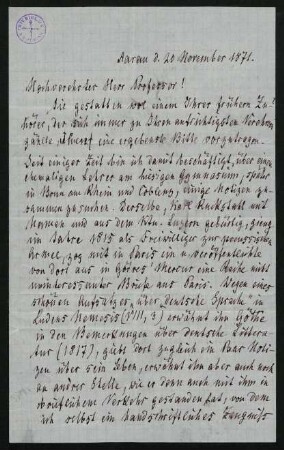 Aarau d. 20 November 1871.
Hochverehrter Herr Professor!
Sie gestatten wol einem Ihrer frühern Zu-
hörer, der sich immer zu Ihren aufrichtigsten Verehrern
zählte, eine ergebenste Bitte vorzutragen.
Seit einiger Zeit bin ich damit beschäftigt, über einen
ehemaligen Lehrer am hiesigen Gymnasium, später
in Bonn am Rhein und Coblenz, einige Notizen zu-
sammen zu suchen. Derselbe, hieß Ruckstuhl mit
Namen und aus dem Ktn. Luzern gebürtig, gieng
im Jahre 1815 als Freiwilliger zur preussischen
Armee, zog mit in Paris ein u. veröffentlichte
von dort aus in Görres Merkur eine Reihe nicht
uninteressanter Briefe aus Paris. Wegen eines
schönen Aufsatzes, über "deutsche Sprache" in
Ludens Nemesis (VIII, 3) erwähnt ihn Göthe
in den Bemerkungen über deutsche Littera-
tur (1817), giebt dort zugleich ein Paar Noti-
zen über sein Leben, erwähnt ihn aber auch noch
an andrer Stelle, wie er denn auch mit ihm in
brieflichem Verkehr gestanden hat, von dem
ich selbst ein handschriftliches Zeugniß